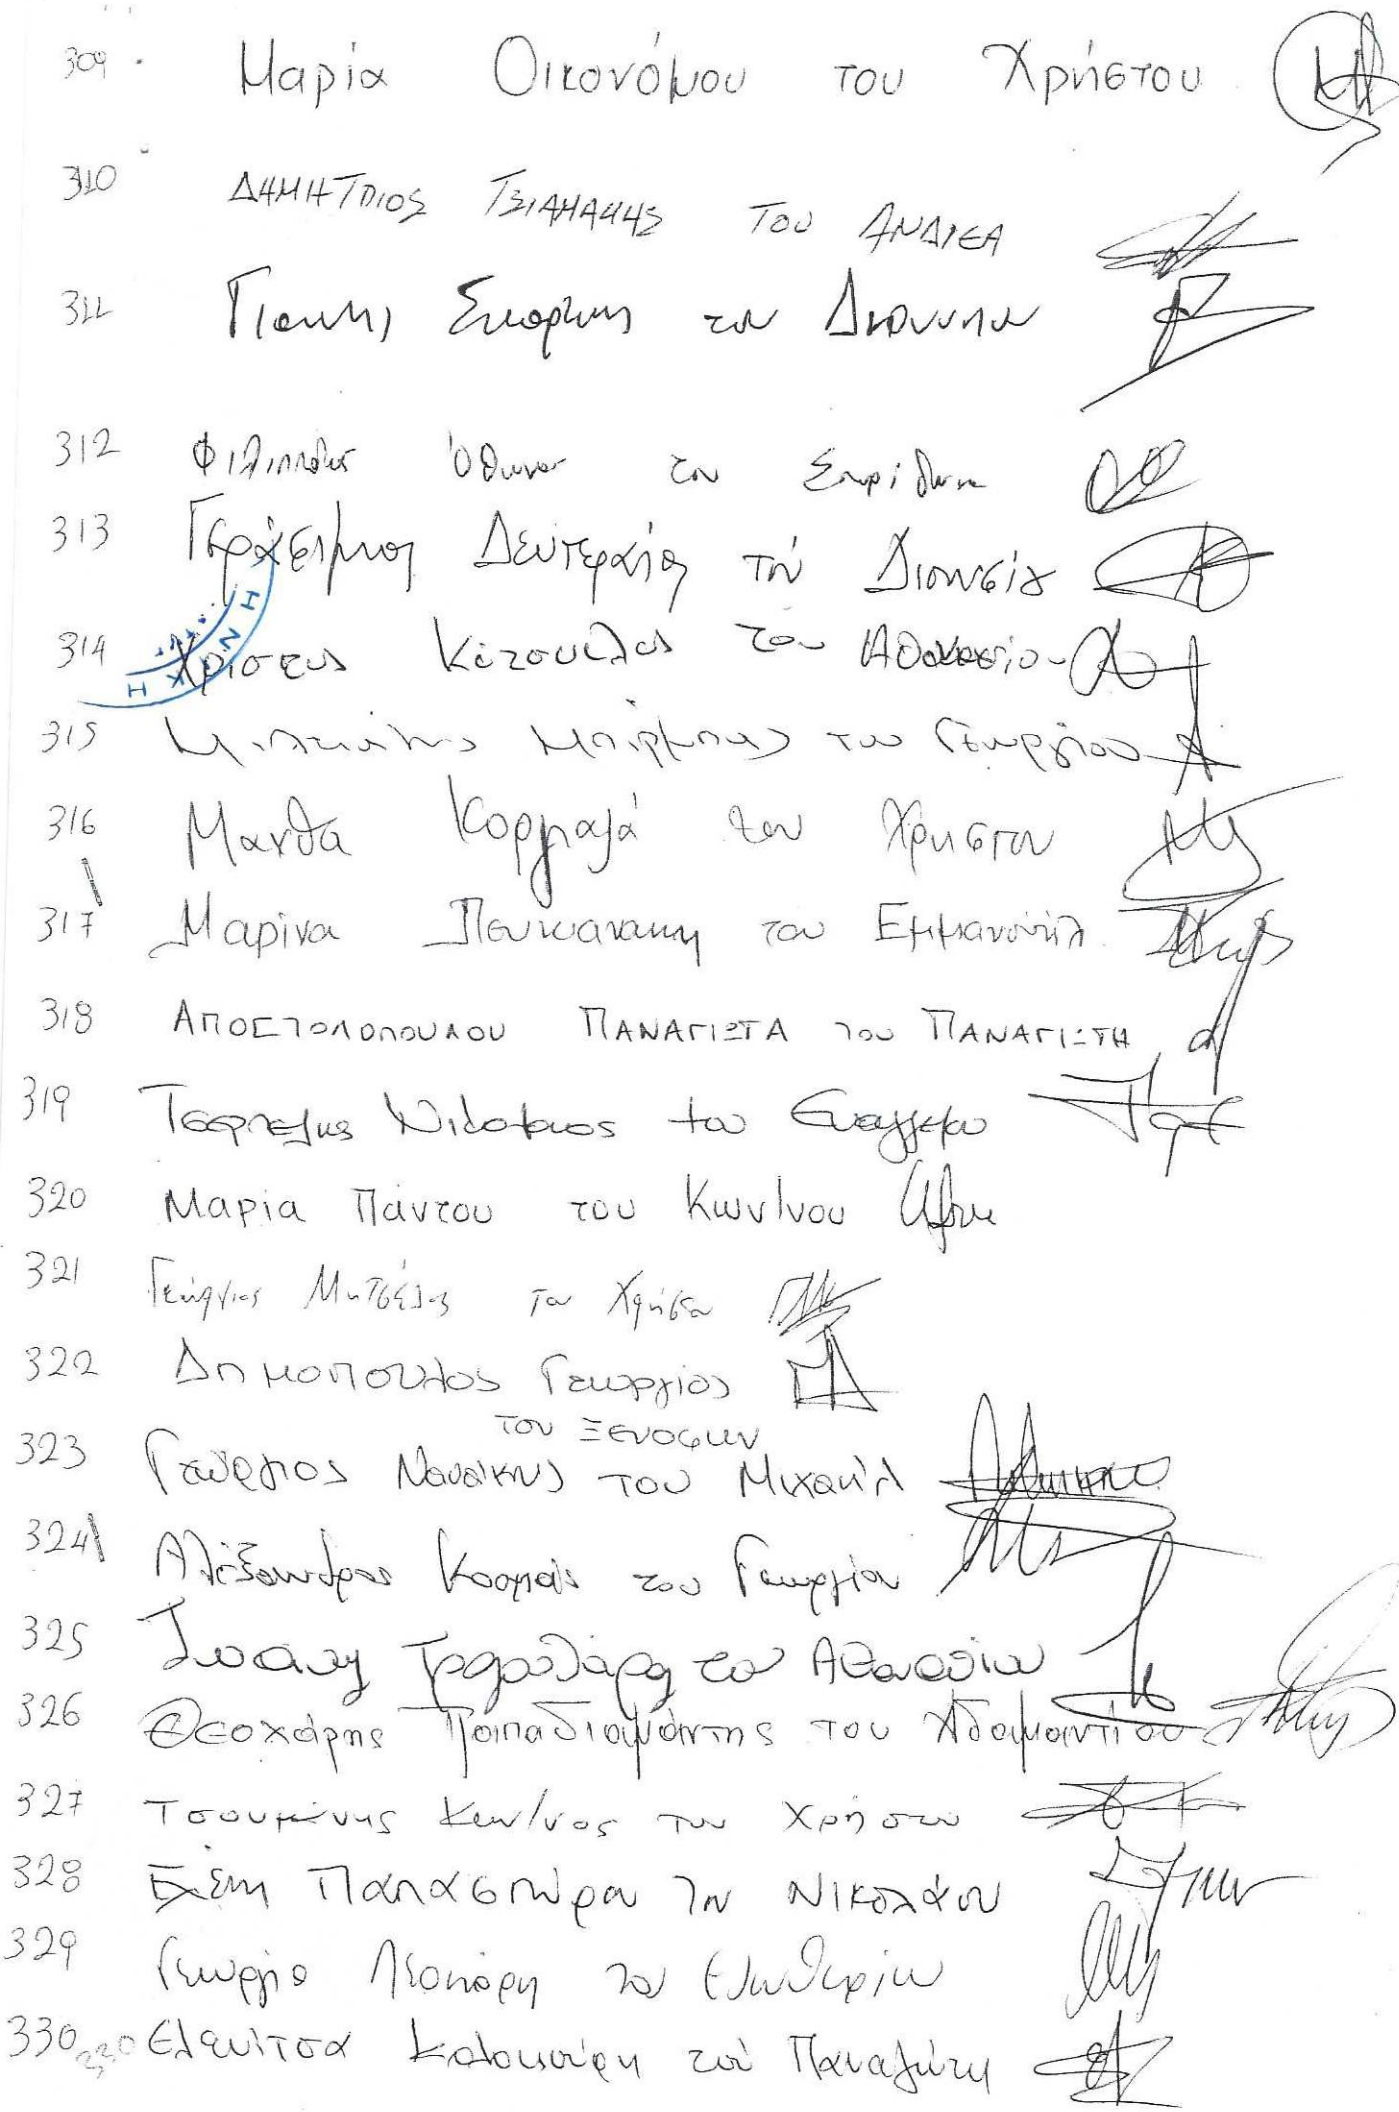 309 Μαρία Οικονόμου του Χρήστου
310 ΔΗΜΗΤΡΙΟΣ ΤΣΙΑΜΑΚΗΣ ΤΟΥ ΑΝΔΡΕΑ
311 Γιάννης του Διονυσίου
312 του Σπυρίδωνα
313 Γεράσιμος Δευτεραίος του Διονυσίου
ΗΝΙΚΗ
314 Χρίστος Κατσουλας του Αθανασίου
315 Μιλτιάδης Μπίρμπας του Γεωργίου
316 Μανθα του Χρηστου
317 Μαρίνα Πευκιανακη του Εμμανουήλ
318 ΑΠΟΣΤΟΛΟΠΟΥΛΟΥ ΠΑΝΑΓΙΩΤΑ του ΠΑΝΑΓΙΩΤΗ
319 Νικολαος του
320 Μαρία Πάντου του Κων/νου
321 Γεώργιος Μητσέλος του Χρήστου
322 Δημοπουλος Γεωργιος
του Ξενοφων
323 Γεώργιος του Μιχαήλ
324 Αλέξανδρος Κοσμάς του Γεωργίου
325 Ιωάννης του Αθανασίου
326 Θεοχάρης Παπαδιαμάντης του Αδαμαντίου
327 Τσουμάνης Κων/νος του Χρήστου
328 Ελένη Παπασπύρου του Νικολάου
329 Γεωργία του Ελευθερίου
330 330 Ελενίτσα του Παναγιώτη